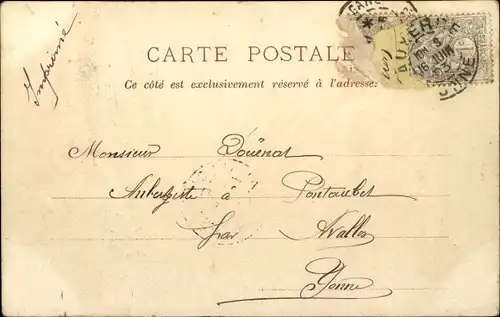 Imprimé
CARTE POSTALE
Ce côté est exclusivement réservé à l'adresse.
AUXERRE
YONNE
Monsieur Doüénat
Aubergiste à Pontaubert
par Avallon
Yonne